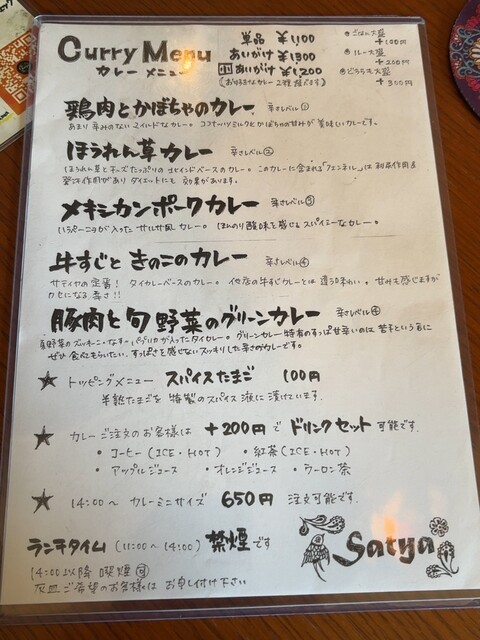 Curry Menu
カレー メニュー
単品 ¥1,100
あいがけ ¥1,300
小 あいがけ ¥1,200
(お好きなカレー2種選べます)
ごはん大盛
+100円
ルー大盛
+200円
どちらも大盛
+300円
鶏肉とかぼちゃのカレー 辛さレベル①
あまり辛みのないマイルドなカレー。ココナッツミルクとかぼちゃの甘みが美味しいカレーです。
ほうれん草カレー 辛さレベル②
ほうれん草とチーズたっぷりの北インドベースのカレー。このカレーに含まれる「フェンネル」は利尿作用&
発汗作用があり ダイエットにも 効果があります。
メキシカンポークカレー 辛さレベル③
ハラペーニョが入った サルサ風カレー。ほんのり酸味を感じるスパイシーなカレー。
牛すじときのこのカレー 辛さレベル④
サティヤの定番! タイカレーベースのカレー。他店の牛すじカレーとは違う味わい。甘みも感じますが
クセになる辛さ!!
豚肉と旬野菜のグリーンカレー 辛さレベル④
夏野菜のズッキーニ・なす・パプリカが入ったタイカレー。グリーンカレー特有のすっぱ甘辛いのは苦手という方に
ぜひ食べてもらいたい、すっぱさを感じないスッキリした辛さのカレーです。
★ トッピングメニュー スパイスたまご 100円
半熟たまごを 特製のスパイス液に漬けています。
★ カレーご注文のお客様は +200円で ドリンクセット 可能です.
・コーヒー(ICE・HOT) ・紅茶(ICE・HOT)
・アップルジュース ・オレンジジュース ・ウーロン茶
★ 14:00〜 カレーミニサイズ 650円 注文可能です.
ランチタイム (11:00〜14:00) 禁煙です
14:00以降 喫煙可
灰皿ご希望のお客様は お申し付け下さい
Satya